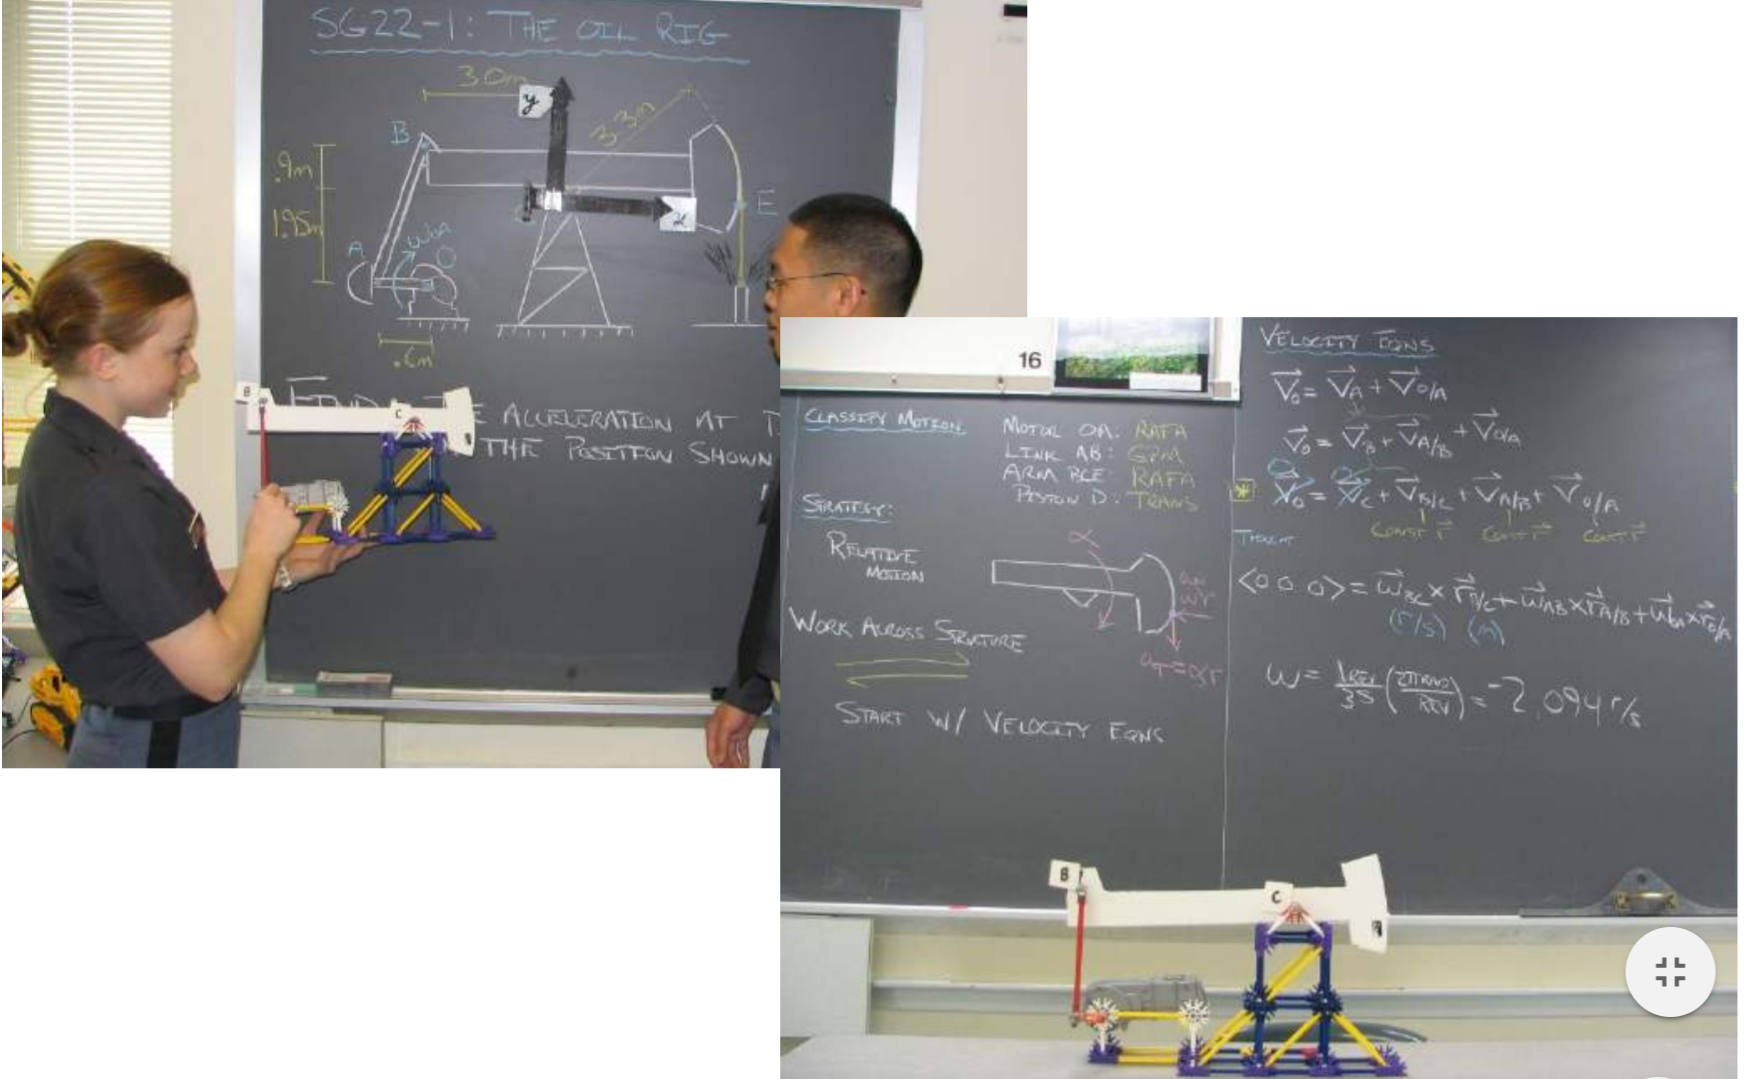 SG22-1: THE OIL RIG
3.0m
y
3.3m
B
.9m
1.95m
E
x
A
ω0A
O
.6m
B
C
ACCELERATION AT
THE POSITION SHOWN
16
CLASSIFY MOTION
MOTOR OA: RAFA
LINK AB: GPM
ARM BCE: RAFA
PISTON D: TRANS
STRATEGY:
RELATIVE
MOTION
α
WORK ACROSS STRUCTURE
aT = αr
START W/ VELOCITY EQNS
VELOCITY EQNS
V⃗o = V⃗A + V⃗O/A
V⃗o = V⃗B + V⃗A/B + V⃗O/A
* V⃗o = V⃗C + V⃗B/C + V⃗A/B + V⃗O/A
CONST r⃗ CONST r⃗ CONST r⃗
<0 0 0> = ω⃗BC × r⃗B/C + ω⃗AB × r⃗A/B + ω⃗OA × r⃗O/A
(r/s) (m)
ω = 1REV/3S (2πRAD/REV) = -2.094 r/s
B
C